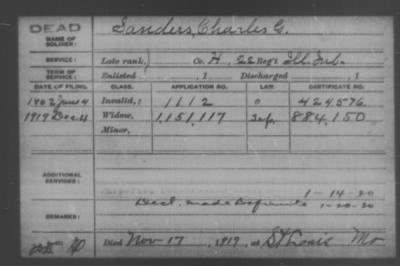 DEAD
NAME OF SOLDIER:
Sanders, Charles G.
SERVICE:
Late rank, Co. H, 22 Reg't Ill. Inf.
TERM OF SERVICE:
Enlisted , 1 Discharged , 1
DATE OF FILING. CLASS. APPLICATION NO. LAW. CERTIFICATE NO.
June 4 Invalid, 1112 0 424576.
1919 Dec 4 Widow, 1,151,117 Sep. 884,150
Minor,
ADDITIONAL SERVICES:
1-14-20
REMARKS:
Decl. made 1-20-20
Died Nov 17, 1919, at St Louis Mo